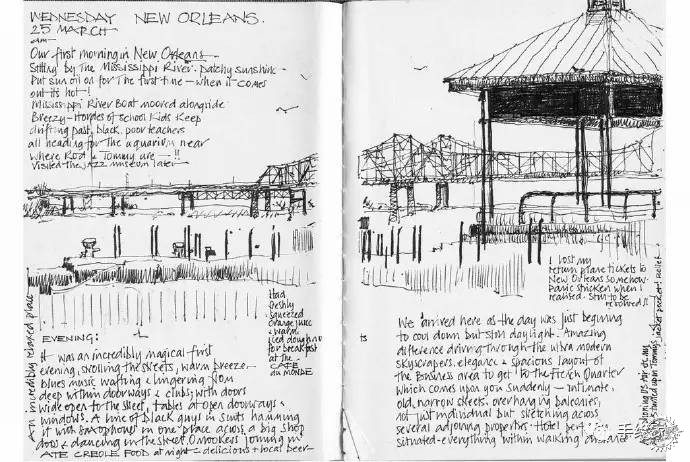 WEDNESDAY NEW ORLEANS.
25 MARCH
am
Our first morning in New Orleans
Sitting by The Mississippi River. Patchy sunshine
Put sun oil on for The first time – when it comes
out its hot – !
Mississippi River Boat moored alongside
Breezy – Hordes of school kids keep
drifting past, black, poor teachers
all heading for the aquarium near
where Rod & Tommy are – !!
Visited the JAZZ museum later
Had
freshly
squeezed
Orange juice
& warm
iced doughnut
for breakfast
at the
CAFE
du MONDE
An incredibly relaxed place
EVENING:
It was an incredibly magical first
evening, strolling the streets, warm breeze
blues music wafting & lingering from
deep within doorways & clubs, with doors
wide open to the street, tables at open doorways &
windows. A line of black guys in suits hamming
it with saxophones in one place across a big shop
door & dancing in the street. Onlookers joining in
ATE CREOLE FOOD at night – delicious & local beer
I lost my
return plane tickets to
New Orleans somehow.
Panic stricken when I
realised. Still to be
resolved !!
We arrived here as the day was just beginning
to cool down but still daylight. Amazing
difference driving through the ultra modern
skyscrapers, elegance & spacious layout of
the Business area to get to the French Quarter
which comes upon you suddenly – intimate,
old, narrow streets, overhanging balconies,
not just individual but sketching across
several adjoining properties. Hotel
situated – everything within walking distance
ts
jacket pocket! toilet